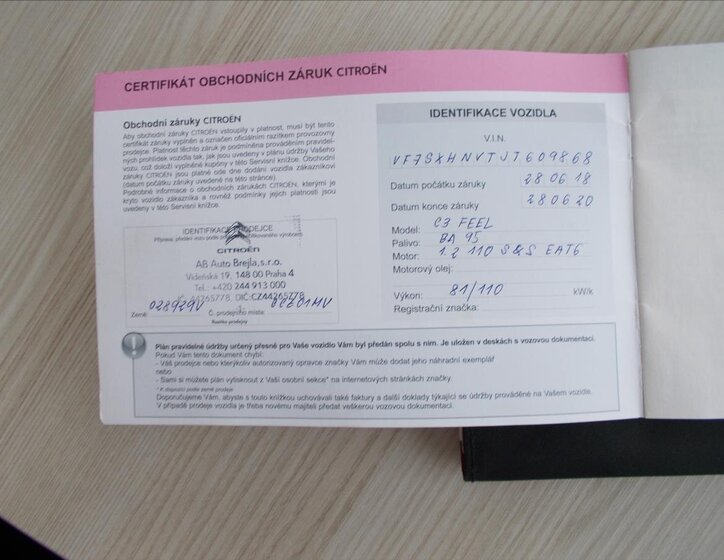 CERTIFIKÁT OBCHODNÍCH ZÁRUK CITROËN
Obchodní záruky CITROËN
Aby obchodní záruky CITROËN vstoupily v platnost, musí být tento
certifikát záruky vyplněn a označen oficiálním razítkem provozovny
prodejce. Platnost těchto záruk je podmíněna prováděním pravidel-
ných prohlídek vozidla tak, jak jsou uvedeny v plánu údržby Vašeho
vozu, což doloží vyplněné kupóny v této Servisní knížce. Obchodní
záruky CITROËN jsou platné ode dne dodání vozidla zákazníkovi
(datum počátku záruky uvedené na této straně).
Podrobné informace o obchodních zárukách CITROËN, kterými je
kryto vozidlo zákazníka a rovněž podmínky jejich platnosti jsou
uvedeny v této Servisní knížce.
IDENTIFIKACE PRODEJCE
CITROËN
AB Auto Brejla,s.r.o.
Vídeňská 19, 148 00 Praha 4
Tel.: +420 244 913 000
44265778, DIČ:CZ44265778
Země: 028929V Č. prodejního místa:
Razítko prodejny
IDENTIFIKACE VOZIDLA
V.I.N.
VF7SXHNVTJT609868
Datum počátku záruky 280618
Datum konce záruky 280620
Model: C3 FEEL
Palivo: BA 95
Motor: 1.2 110 S&S EAT6
Motorový olej:
Výkon: 81/110 kW/k
Registrační značka:
Plán pravidelné údržby určený přesně pro Vaše vozidlo Vám byl předán spolu s ním. Je uložen v deskách s vozovou dokumentací.
Pokud Vám tento dokument chybí:
- Váš prodejce nebo kterýkoliv autorizovaný opravce značky Vám může dodat jeho náhradní exemplář
nebo
- Sami si můžete plán vytisknout z Vaší osobní sekce* na internetových stránkách značky.
* K dispozici podle země prodeje
Doporučujeme Vám, abyste s touto knížkou uchovávali také faktury a další doklady týkající se údržby prováděné na Vašem vozidle.
V případě prodeje vozidla je třeba novému majiteli předat veškerou vozovou dokumentaci.